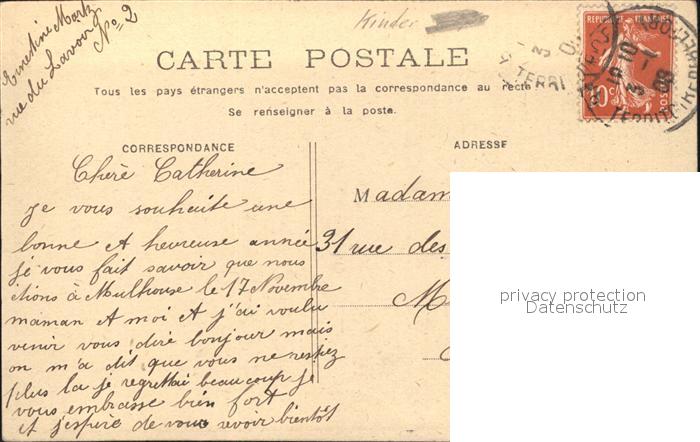 Ernestine Martz
rue du Lavoir
No 2
Kinder
CARTE POSTALE
Tous les pays étrangers n'acceptent pas la correspondance au recto
Se renseigner à la poste.
REPUBLIQUE FRANÇAISE
10c
POSTES
CORRESPONDANCE
Chère Catherine
Je vous souhaite une
bonne et heureuse année
je vous fait savoir que nous
étions à Mulhouse le 17 Novembre
maman et moi et j'ai voulu
venir vous dire bonjour mais
on m'a dit que vous ne restiez
plus la je regrettai beaucoup je
vous embrasse bien fort
et j'espère de vous revoir bientôt
ADRESSE
Madam
31 rue des
M
privacy protection
Datenschutz